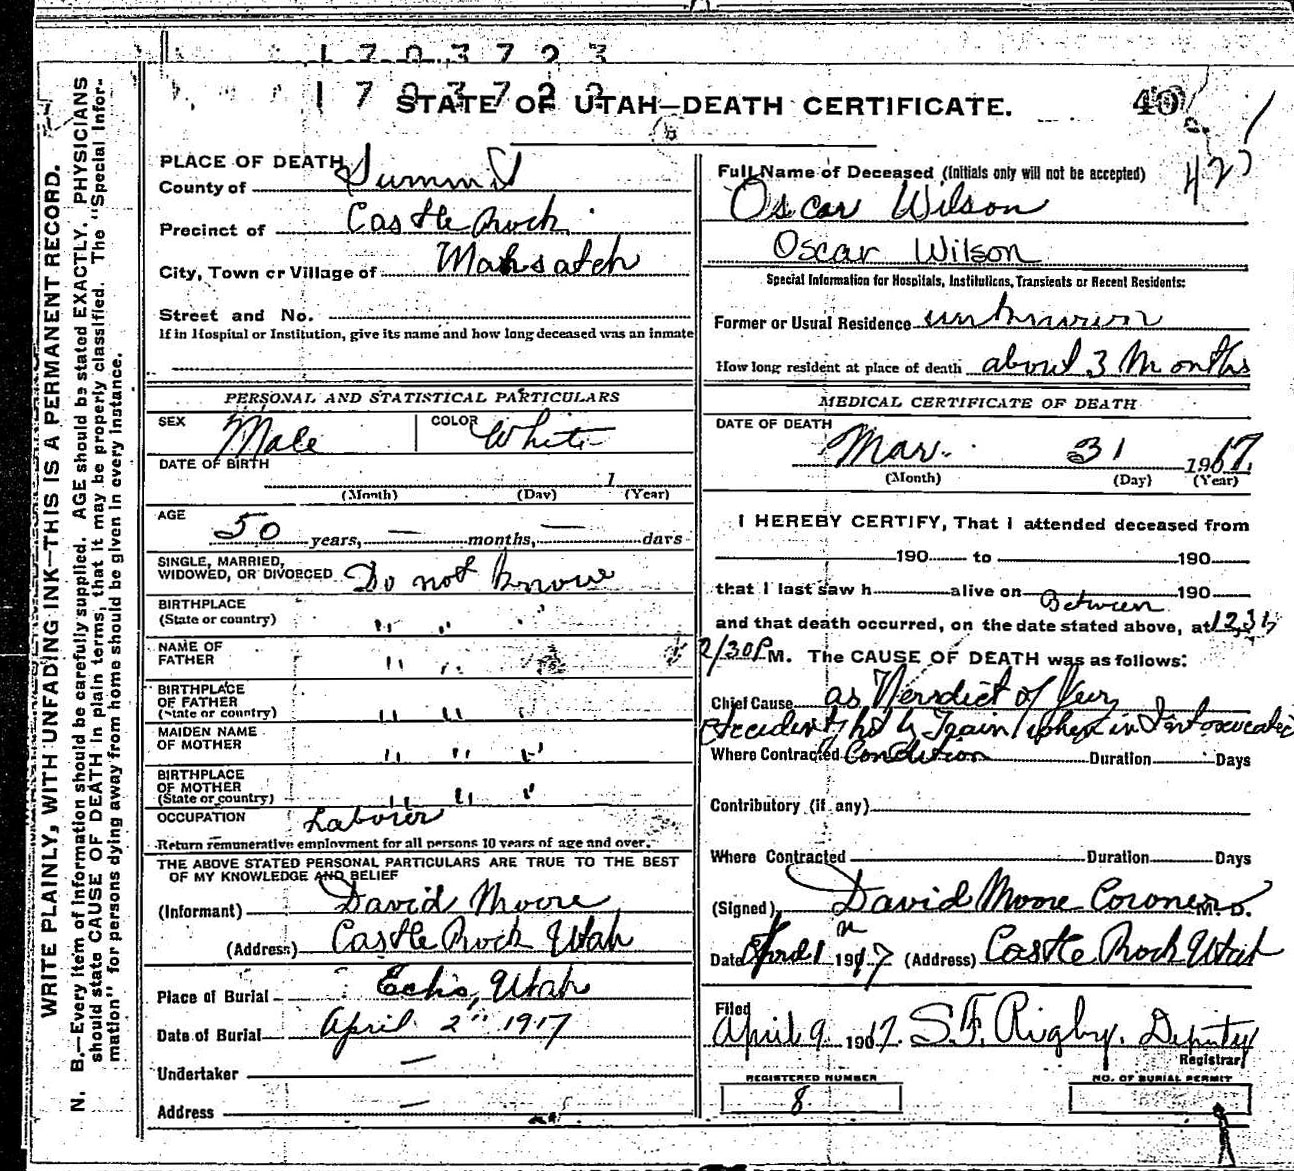 1 7 0 3 7 2 3
1 7 0 3 7 2 3
STATE OF UTAH—DEATH CERTIFICATE.
40
427
WRITE PLAINLY, WITH UNFADING INK—THIS IS A PERMANENT RECORD.
N. B.—Every item of information should be carefully supplied. AGE should be stated EXACTLY. PHYSICIANS
should state CAUSE OF DEATH in plain terms, that it may be properly classified. The "Special Infor-
mation" for persons dying away from home should be given in every instance.
PLACE OF DEATH
County of Summit
Precinct of Castle Rock
City, Town or Village of Wahsatch
Street and No.
If in Hospital or Institution, give its name and how long deceased was an inmate
PERSONAL AND STATISTICAL PARTICULARS
SEX Male COLOR White
DATE OF BIRTH 1
(Month) (Day) (Year)
AGE
50 years, — months, — days
SINGLE, MARRIED,
WIDOWED, OR DIVORCED Do not know
BIRTHPLACE
(State or country) " " "
NAME OF
FATHER " " "
BIRTHPLACE
OF FATHER
(State or country) " " "
MAIDEN NAME
OF MOTHER " " "
BIRTHPLACE
OF MOTHER
(State or country) " " "
OCCUPATION Laborer
Return remunerative employment for all persons 10 years of age and over.
THE ABOVE STATED PERSONAL PARTICULARS ARE TRUE TO THE BEST
OF MY KNOWLEDGE AND BELIEF
(Informant) David Moore
(Address) Castle Rock Utah
Place of Burial Echo, Utah
Date of Burial April 2" 1917
Undertaker —
Address —
Full Name of Deceased (Initials only will not be accepted)
Oscar Wilson
Oscar Wilson
Special Information for Hospitals, Institutions, Transients or Recent Residents:
Former or Usual Residence unknown
How long resident at place of death about 3 Months
MEDICAL CERTIFICATE OF DEATH
DATE OF DEATH
Mar. 31 1917.
(Month) (Day) (Year)
I HEREBY CERTIFY, That I attended deceased from
190 to 190
that I last saw h alive on 190
Between
and that death occurred, on the date stated above, at 12,31,
2/30 P M. The CAUSE OF DEATH was as follows:
Chief Cause as Verdict of Jury
Accident, hit by Train when in Intoxicated
Where Contracted Condition Duration Days
Contributory (if any)
Where Contracted Duration Days
(Signed) David Moore Coroner M. D.
Date April 1 1917 (Address) Castle Rock Utah
Filed
April 9 1917. S. F. Rigby. Deputy
Registrar
REGISTERED NUMBER
8
NO. OF BURIAL PERMIT